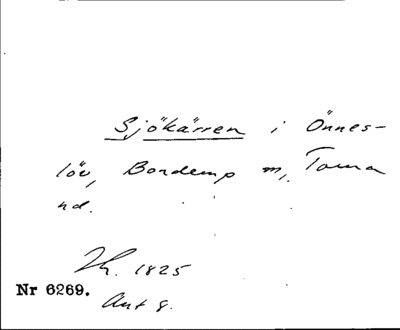 Sjökärren i Önnes-
löv, Bondemp m, Torna
hd.
Th. 1825
Nr 6269.
Ant 8.